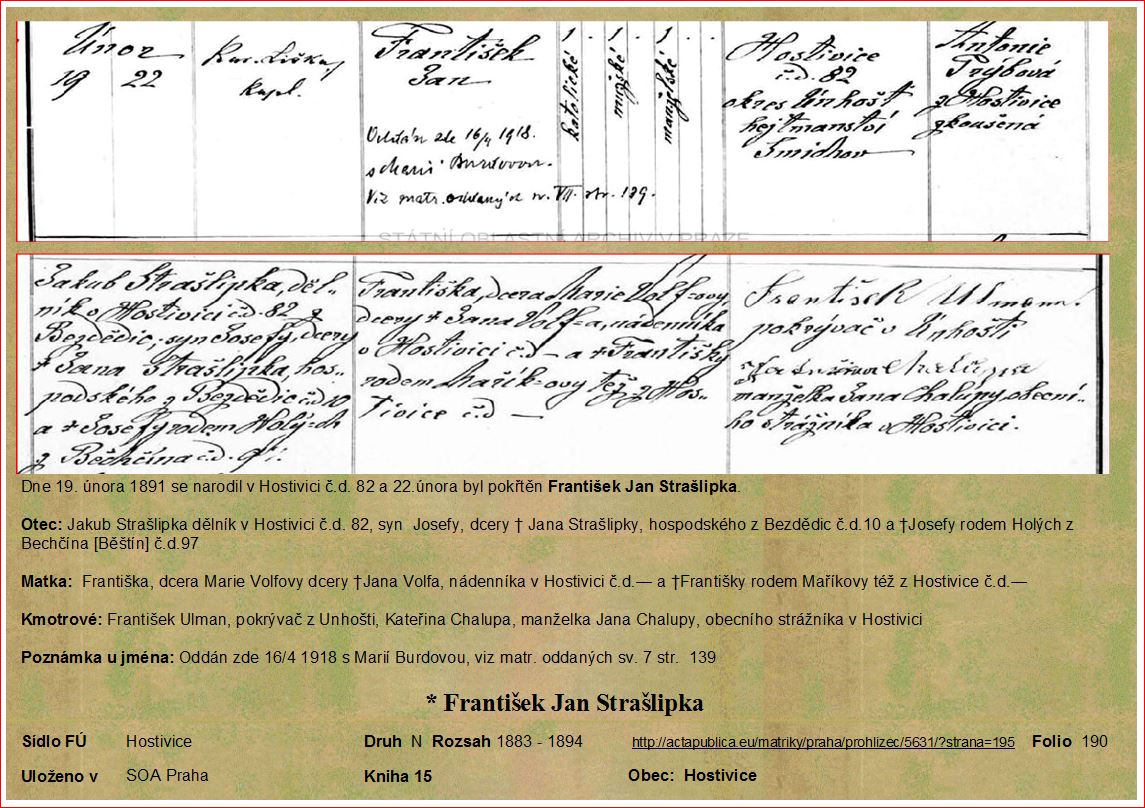 Únor
19 22
Kar. Liška
kapl.
František
Jan
Oddán zde 16/4 1918.
s Marií Burdovou.
Viz matr. oddaných sv. VII. str. 139.
1 . 1 . 1 .
katolické
mužské
manželské
Hostivice
č.d. 82
okres Únhošť
hejtmanství
Smíchov
Antonie
Trýbová
z Hostivice
zkoušená
STÁTNÍ OBLASTNÍ ARCHIV V PRAZE
Jakub Strašlipka, děl-
ník v Hostivici č.d. 82 z
Bezdědic, syn Josefy, dcery
† Jana Strašlipka, hos-
podského z Bezdědic č.d. 10
a † Josefy rodem Holý-ch
z Běchčína č.d. 97.
Františka, dcera Marie Volf-ovy,
dcery † Jana Volf-a, nádenníka
v Hostivici č.d. — a † Františky
rodem Mařík-ovy též z Hos-
tivice č.d. —
František Ulman
pokrývač v Únhošti
manželka Jana Chalupy, obecní-
ho strážníka v Hostivici.
Dne 19. února 1891 se narodil v Hostivici č.d. 82 a 22.února byl pokřtěn František Jan Strašlipka.
Otec: Jakub Strašlipka dělník v Hostivici č.d. 82, syn Josefy, dcery † Jana Strašlipky, hospodského z Bezdědic č.d.10 a †Josefy rodem Holých z
Bechčína [Běštín] č.d.97
Matka: Františka, dcera Marie Volfovy dcery †Jana Volfa, nádenníka v Hostivici č.d.— a †Františky rodem Maříkovy též z Hostivice č.d.—
Kmotrové: František Ulman, pokrývač z Unhošti, Kateřina Chalupa, manželka Jana Chalupy, obecního strážníka v Hostivici
Poznámka u jména: Oddán zde 16/4 1918 s Marií Burdovou, viz matr. oddaných sv. 7 str. 139
* František Jan Strašlipka
Sídlo FÚ Hostivice Druh N Rozsah 1883 - 1894 http://actapublica.eu/matriky/praha/prohlizec/5631/?strana=195 Folio 190
Uloženo v SOA Praha Kniha 15 Obec: Hostivice